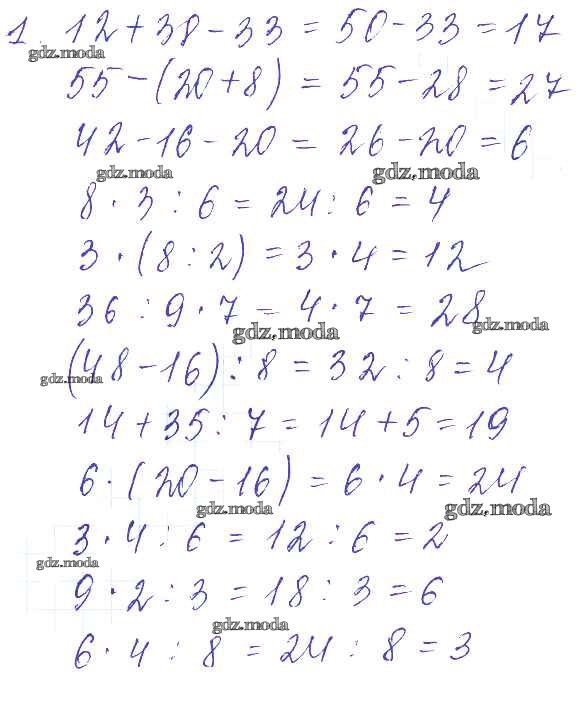 1. 12 + 38 - 33 = 50 - 33 = 17
gdz.moda
55 - (20 + 8) = 55 - 28 = 27
42 - 16 - 20 = 26 - 20 = 6
gdz.moda gdz.moda
8 · 3 : 6 = 24 : 6 = 4
3 · (8 : 2) = 3 · 4 = 12
36 : 9 · 7 = 4 · 7 = 28
gdz.moda gdz.moda
(48 - 16) : 8 = 32 : 8 = 4
gdz.moda
14 + 35 : 7 = 14 + 5 = 19
6 · (20 - 16) = 6 · 4 = 24
gdz.moda gdz.moda
3 · 4 : 6 = 12 : 6 = 2
gdz.moda
9 · 2 : 3 = 18 : 3 = 6
gdz.moda
6 · 4 : 8 = 24 : 8 = 3